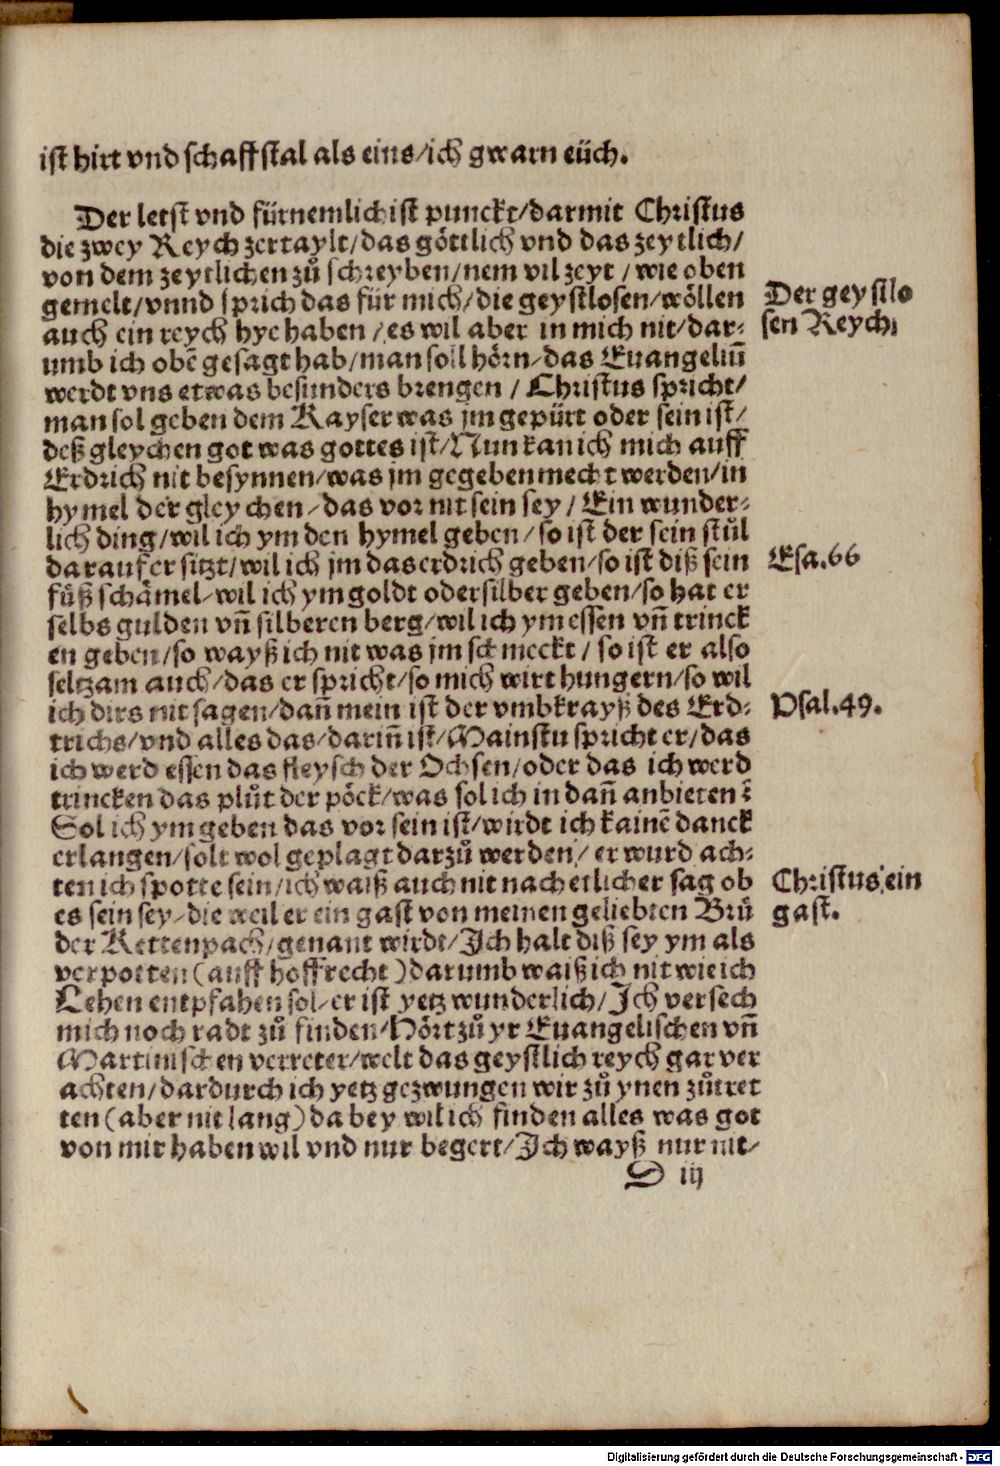 ist hirt vnd schaffstal als eins/ich gwarn eüch.
Der letst vnd fürnemlich ist punckt/darmit Christus
die zwey Reych zertaylt/das göttlich vnd das zeytlich/
von dem zeytlichen zů schreyben/nem vil zeyt/wie oben
gemelt/vnnd sprich das für mich/die geystlosen/wöllen
auch ein reych hye haben/es wil aber in mich nit/dar⸗
umb ich obē gesagt hab/man soll hörn/das Euangeliū
werdt vns etwas besunders brengen/Christus spricht/
man sol geben dem Kayser was jm gepürt oder sein ist/
deß gleychen got was gottes ist/Nun kan ich mich auff
Erdrich nit besynnen/was jm gegeben mecht werden/in
hymel der gleychen/das vor nit sein sey/Ein wunder⸗
lich ding/wil ich ym den hymel geben/so ist der sein stůl
darauf er sitzt/wil ich jm das erdrich geben/so ist diß sein
fůß schämel/wil ich ym goldt oder silber geben/so hat er
selbs gulden vñ silberen berg/wil ich ym essen vñ trinck
en geben/so wayß ich nit was jm schmeckt/so ist er also
seltzam auch/das er spricht/so mich wirt hungern/so wil
ich dirs nit sagen/dañ mein ist der vmbkrayß des Erd⸗
trichs/vnd alles das/dariñ ist/Mainstu spricht er/das
ich werd essen das fleysch der Ochsen/oder das ich werd
trincken das plůt der pöck/was sol ich in dañ anbieten?
Sol ich ym geben das vor sein ist/wirdt ich kainē danck
erlangen/solt wol geplagt darzů werden/er wurd ach⸗
ten ich spotte sein/ich waiß auch nit nach etlicher sag ob
es sein sey/die weil er ein gast von meinen geliebten Brů
der Kettenpach/genant wirdt/Ich halt diß sey ym als
verpotten(auff hoffrecht)darumb waiß ich nit wie ich
Lehen entpfahen sol/er ist yetz wunderlich/Ich versech
mich noch radt zů finden/Hört zů yr Euangelischen vñ
Martinischen verreter/welt das geystlich reych gar ver
achten/dardurch ich yetz gezwungen wir zů ynen zůtret
ten(aber nit lang)da bey wil ich finden alles was got
von mir haben wil vnd nur begert/Ich wayß nur nit/
D iij
Der geystlo
sen Reych
Esa.66
Psal.49.
Christus ein
gast.
Digitalisierung gefördert durch die Deutsche Forschungsgemeinschaft - DFG